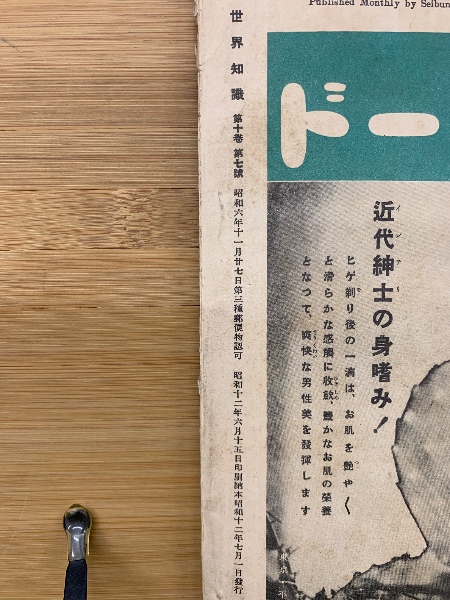 Published Monthly by Seibun
ドー
近代紳士の身嗜み!
ヒゲ剃り後の一滴は、お肌を艶やく
と滑らかな感觸に收斂、豐かなお肌の榮養
となつて、爽快な男性美を發揮します
世界知識 第十卷 第七號 昭和六年十一月廿七日第三種郵便物認可 昭和十二年六月十五日印刷納本昭和十二年七月一日發行